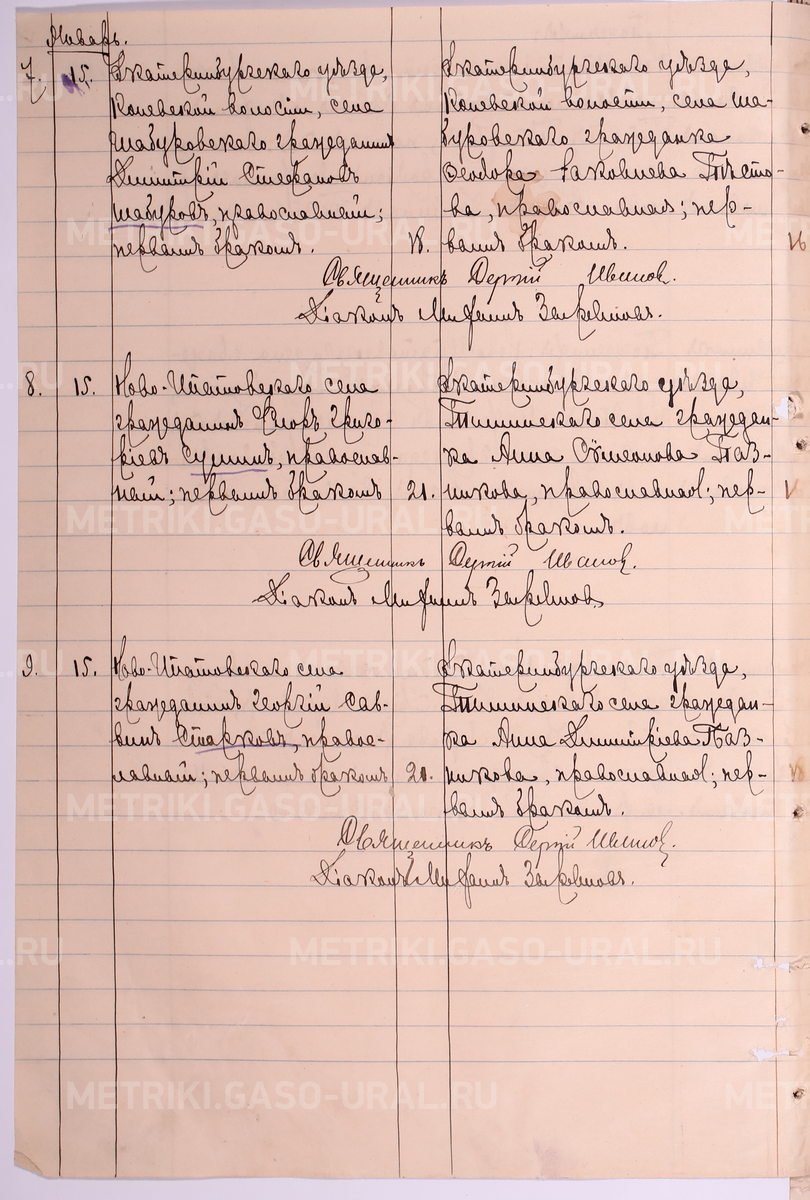 Январь.
7. 15. Екатеринбургскаго уѣзда,
Коневской волости, села
Шабуровскаго гражданинъ
Димитрій Стефановъ
Шабуровъ, православный;
первымъ бракомъ. 18.
Екатеринбургскаго уѣзда,
Коневской волости, села Ша-
буровскаго гражданка
Ѳеодора Іаковлева
ва, православная; пер-
вымъ бракомъ. 16
Священникъ Сергій Ивановъ.
Діаконъ
8. 15. Ново-Ипатовскаго села
гражданинъ Егоръ Григо-
рьевъ православ-
ный; первымъ бракомъ 21.
Екатеринбургскаго уѣзда,
села граждан-
ка Анна Симеонова Паз-
никова, православная; пер-
вымъ бракомъ.
Священникъ Сергій Ивановъ.
Діаконъ
9. 15. Ново-Ипатовскаго села
гражданинъ Георгій Сав-
винъ Старковъ, право-
славный; первымъ бракомъ 20.
Екатеринбургскаго уѣзда,
села граждан-
ка Анна Димитріева Паз-
никова, православная; пер-
вымъ бракомъ.
Священникъ Сергій Ивановъ.
Діаконъ
METRIKI.GASO-URAL.RU